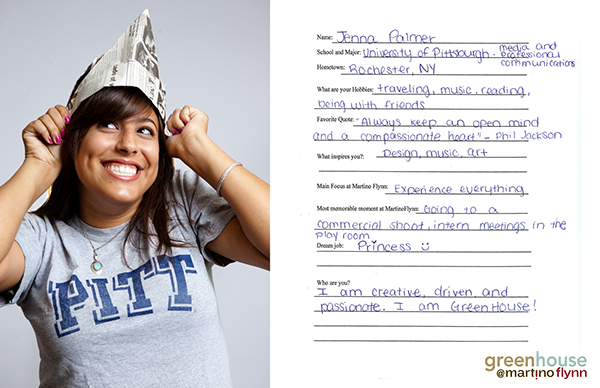 PITT
Name: Jenna Palmer
School and Major: University of Pittsburgh - media and
professional
communications
Hometown: Rochester, NY
What are your Hobbies: traveling, music, reading,
being with friends
Favorite Quote: "Always keep an open mind
and a compassionate heart" - Phil Jackson
What inspires you? Design, music, art
Main Focus at Martino Flynn: Experience everything
Most memorable moment at MartinoFlynn: Going to a
commercial shoot, intern meetings in the
play room
Dream job: Princess
Who are you?
I am creative, driven and
passionate. I am GreenHouse!
greenhouse
@martinoflynn